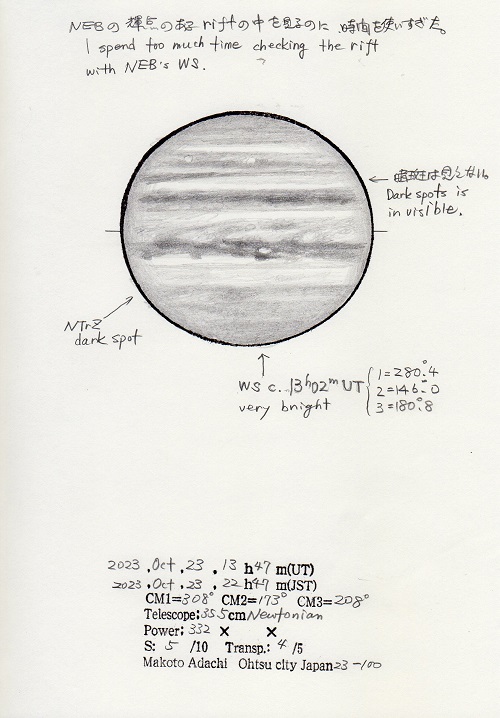 NEBの輝点のあるriftの中を見るのに、時間を使いすぎた。
I spend too much time checking the rift
with NEB's WS.
暗斑は見えない。
Dark spots is
in visible.
NTrZ
dark spot
WS c. 13h02m UT
very bright
1=280°.4
2=146°.0
3=180°.8
2023.Oct.23.13 h47 m(UT)
2023.Oct.23.22 h47 m(JST)
CM1=308° CM2=173° CM3=208°
Telescope:35.5cm Newtonian
Power: 332 × ×
S: 5 /10 Transp.: 4 /5
Makoto Adachi Ohtsu city Japan 23-100